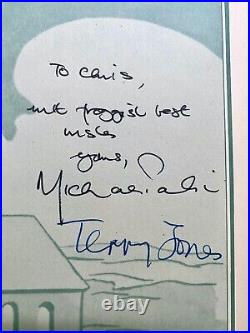 To Chris,
with froggish best
wishes
yours,
Michael Palin
Terry Jones